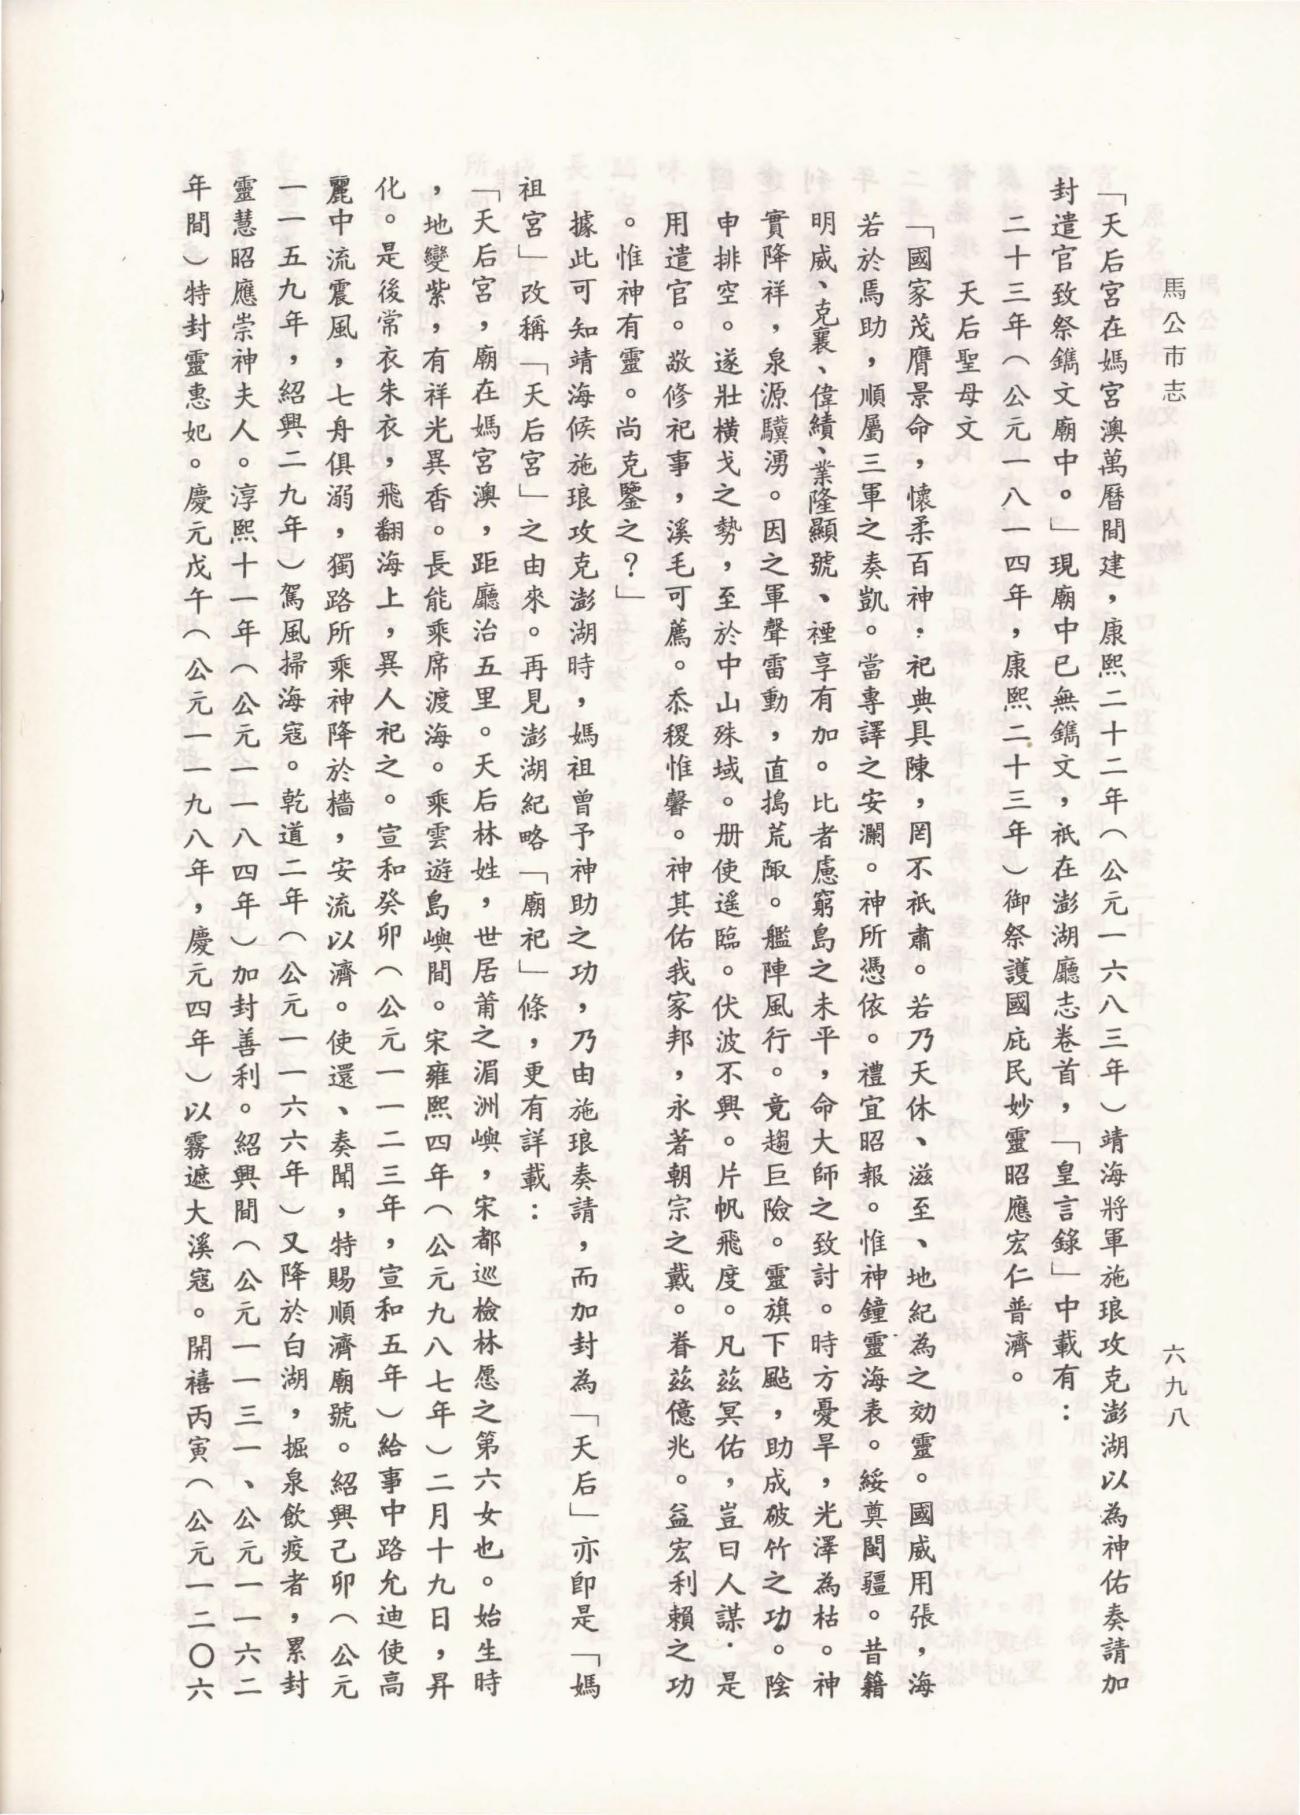 馬公市志
六九八
「天后宮在媽宮澳萬曆間建，康熙二十二年（公元一六八三年）靖海將軍施琅攻克澎湖以為神佑奏請加
封遣官致祭鐫文廟中。」現廟中已無鐫文，祇在澎湖廳志卷首，「皇言錄」中載有：
二十三年（公元一八一四年，康熙二十三年）御祭護國庇民妙靈昭應宏仁普濟。
天后聖母文
「國家茂膺景命，懷柔百神．祀典具陳，罔不祇肅。若乃天休、滋至、地紀為之効靈。國威用張，海
若於焉助，順屬三軍之奏凱。當專譯之安瀾。神所憑依。禮宜昭報。惟神鐘靈海表。綏奠閩疆。昔籍
明威、克襄、偉績、業隆顯號、禋享有加。比者慮窮島之未平，命大師之致討。時方憂旱，光澤為枯。神
實降祥，泉源驥湧。因之軍聲雷動，直搗荒陬。艦陣風行。竟趨巨險。靈旗下颭，助成破竹之功。陰
申排空。遂壯橫戈之勢，至於中山殊域。册使遥臨。伏波不興。片帆飛度。凡茲冥佑，豈曰人謀．是
用遣官。敬修祀事，溪毛可薦。忝稷惟馨。神其佑我家邦，永著朝宗之戴。眷茲億兆。益宏利賴之功
。惟神有靈。尚克鑒之？」
據此可知靖海候施琅攻克澎湖時，媽祖曾予神助之功，乃由施琅奏請，而加封為「天后」亦卽是「媽
祖宮」改稱「天后宮」之由來。再見澎湖紀略「廟祀」條，更有詳載：
「天后宮，廟在媽宮澳，距廳治五里。天后林姓，世居莆之湄洲嶼，宋都巡檢林愿之第六女也。始生時
，地變紫，有祥光異香。長能乘席渡海。乘雲遊島嶼間。宋雍熙四年（公元九八七年）二月十九日，昇
化。是後常衣朱衣，飛翻海上，異人祀之。宣和癸卯（公元一一二三年，宣和五年）給事中路允迪使高
麗中流震風，七舟俱溺，獨路所乘神降於檣，安流以濟。使還、奏聞，特賜順濟廟號。紹興己卯（公元
一一五九年，紹興二九年）駕風掃海寇。乾道二年（公元一一六六年）又降於白湖，掘泉飲疫者，累封
靈慧昭應崇神夫人。淳熙十一年（公元一一八四年）加封善利。紹興間（公元一一三一、公元一一六二
年間）特封靈惠妃。慶元戊午（公元一一九八年，慶元四年）以霧遮大溪寇。開禧丙寅（公元一二〇六